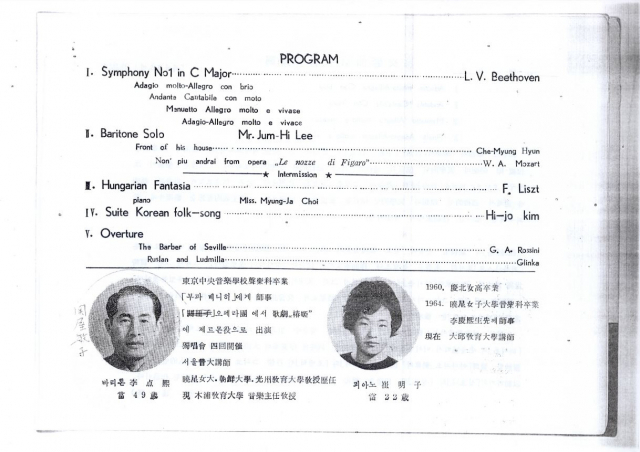 PROGRAM
I. Symphony No1 in C Major L. V. Beethoven
Adagio molto-Allegro con brio
Andante Cantabile con moto
Manuetto Allegro molto e vivace
Adagio-Allegro molto e vivace
II. Baritone Solo Mr. Jum-Hi Lee
Front of his house Che-Myung Hyun
Non' piu andrai from opera „Le nozze di Figaro" W. A. Mozart
★ Intermission ★
III. Hungarian Fantasia F. Liszt
piano Miss. Myung-Ja Choi
IV. Suite Korean folk-song Hi-jo kim
V. Overture
The Barber of Seville G. A. Rossini
Ruslan and Ludmilla Glinka
東京中央音樂學校聲樂科卒業
「부라 베니히」에게 師事
오페라團 에서 歌劇 椿姬
에 제르몬役으로 出演
獨唱會 四回開催
서울音大講師
曉星女大, 朝鮮大學, 光州敎育大學敎授歷任
現 木浦敎育大學 音樂主任敎授
바리톤 李点熙
當 49歲
1960. 慶北女高卒業
1964. 曉星女子大學音樂科卒業
李慶熙先生께師事
現在 大邱敎育大學講師
피아노 崔明子
當 23歲